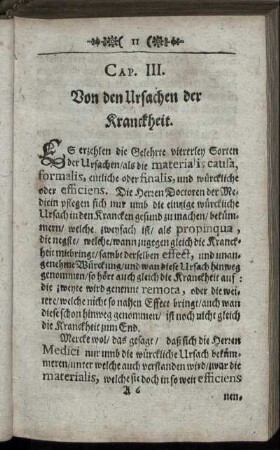 11
CAP. III.
Von den Ursachen der
Kranckheit.
ES erzehlen die Gelehrte viererley Sorten
der Ursachen/als die materiali, causa,
formalis, entliche oder finalis, und würckliche
oder efficiens. Die Herren Doctoren der Me-
dicin pflegen sich nur umb die einzige würckliche
Ursach in den Krancken gesund zu machen/ beküm-
mern/ welche zweyfach ist/ als propinqua,
die negste/ welche/wann zugegen gleich die Kranck-
heit mitbringt/ sambt derselben effect, und unan-
genehme Würckung/und wan diese Ursach hinweg
genommen/so höret auch gleich die Kranckheit auf:
die zweyte wird genennt remota, oder die wei-
tere/welche nicht so nahen Effect bringt/auch wan
diese schon hinweg genommen/ ist noch nicht gleich
die Kranckheit zum End.
Mercke wol/ das gesagt/ daß sich die Herren
Medici nur umb die würckliche Ursach beküm-
meren/unter welche auch verstanden wird/zwar die
materialis, welche sie doch in so weit efficiens
A 6
nen-